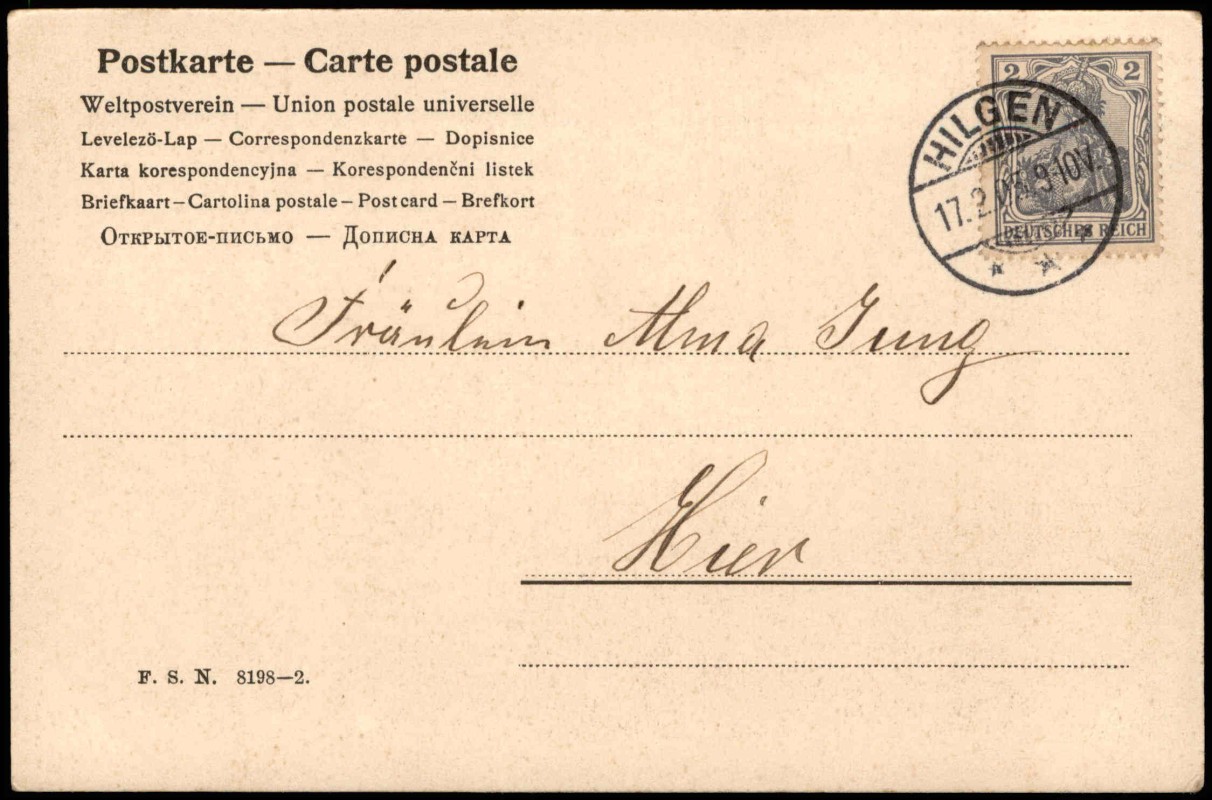 Postkarte — Carte postale
Weltpostverein — Union postale universelle
Levelezö-Lap — Correspondenzkarte — Dopisnice
Karta korespondencyjna — Korespondenčni listek
Briefkaart — Cartolina postale — Post card — Brefkort
Открытое-письмо — Дописна карта
2 2
DEUTSCHES REICH
HILGEN
17.2.05. 9-10V.
Fräulein Alma Jung
Hier
F. S. N. 8198—2.